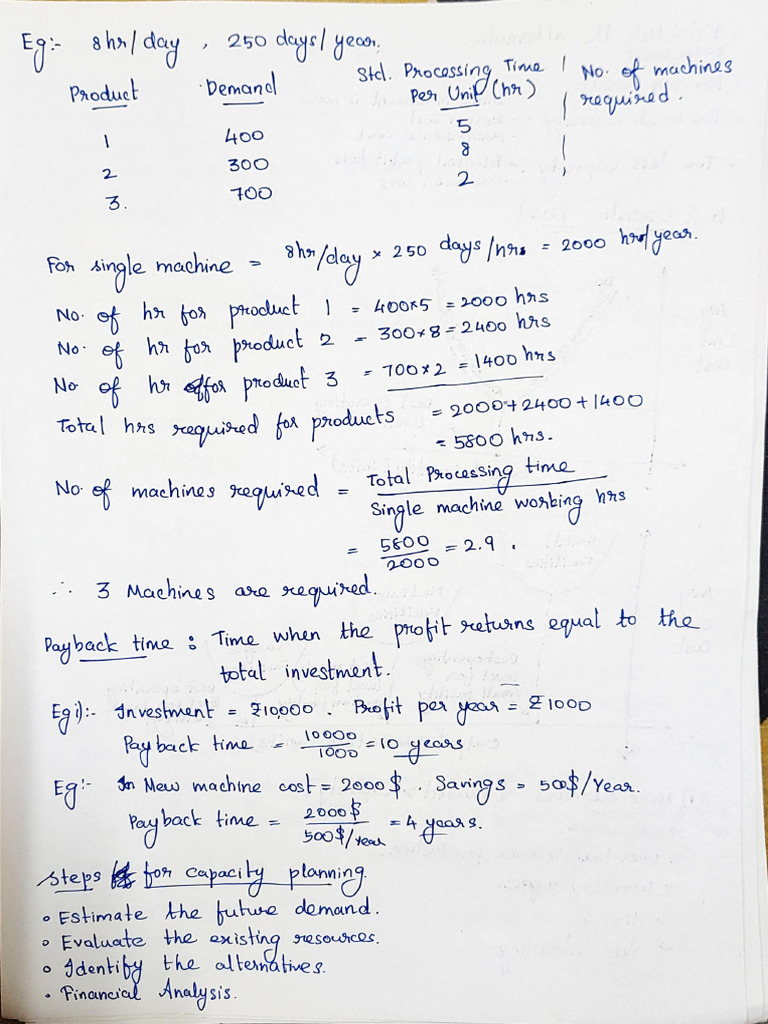 Eg:- 8hr/day , 250 days/year.
Product Demand Std. Processing Time Per Unit (hr) No. of machines required.
1 400 5
2 300 8
3. 700 2
For single machine = 8hr/day × 250 days/hrs = 2000 hrs/year.
No. of hr for product 1 = 400×5 = 2000 hrs
No. of hr for product 2 = 300×8 = 2400 hrs
No of hr for product 3 = 700×2 = 1400 hrs
Total hrs required for products = 2000+2400+1400
= 5800 hrs.
No. of machines required = Total Processing time / Single machine working hrs
= 5800/2000 = 2.9 .
∴ 3 Machines are required.
Payback time : Time when the profit returns equal to the
total investment.
Eg i):- Investment = ₹10,000 . Profit per year = ₹1000
Payback time = 10000/1000 = 10 years
Eg:- New machine cost = 2000$ . Savings = 500$/Year.
Payback time = 2000$ / 500$/year = 4 years.
Steps for capacity planning.
• Estimate the future demand.
• Evaluate the existing resources.
• Identify the alternatives.
• Financial Analysis.